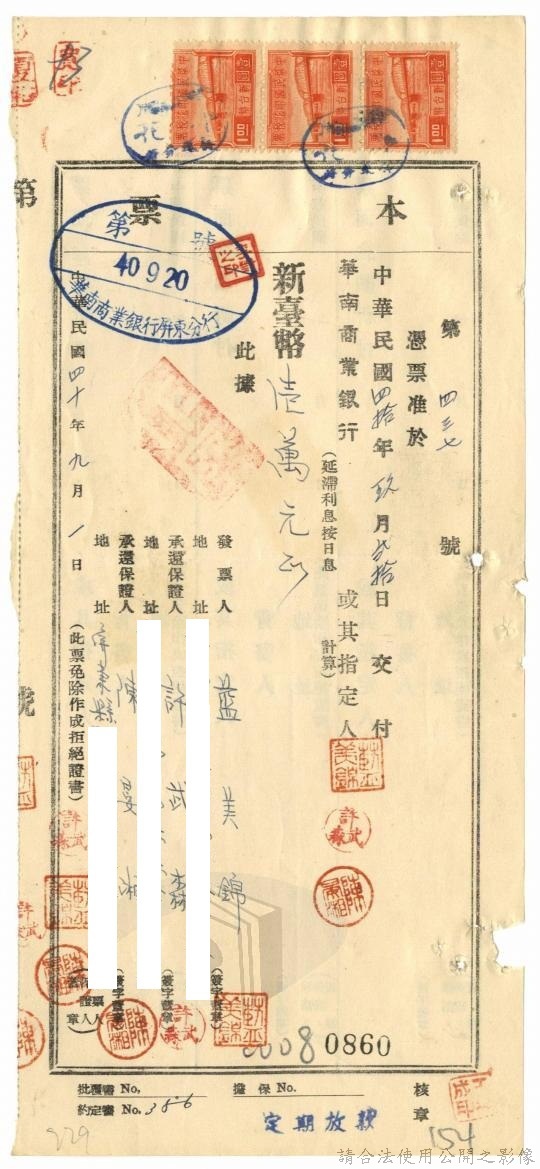 本票
第四三七號
憑票准於
中華民國四拾年玖月貳拾日交付
華南商業銀行 或其指定人
(延滯利息按日息 計算)
新臺幣壹萬元正
此據
發票人 藍美錦 (簽字蓋章)
地址
承還保證人 許武森 (簽字蓋章)
地址
承還保證人 陳 湘 (簽字蓋章)
地址 屏東縣
(此票免除作成拒絕證書)
中華民國四十年九月1日
第 號
40 9 20
華南商業銀行屏東分行
壹圓
1.00
壹圓
1.00
壹圓
1.00
第
號
美錦
許武森
陳湘
0008 0860
批覆書 No.
約定書 No. 386
擔保 No.
定期放款
核章
229
154
請合法使用公開之影像